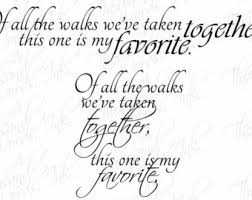 Of all the walks we've taken together,
this one is my favorite.
Of all the walks
we've taken
together,
this one is my
favorite.